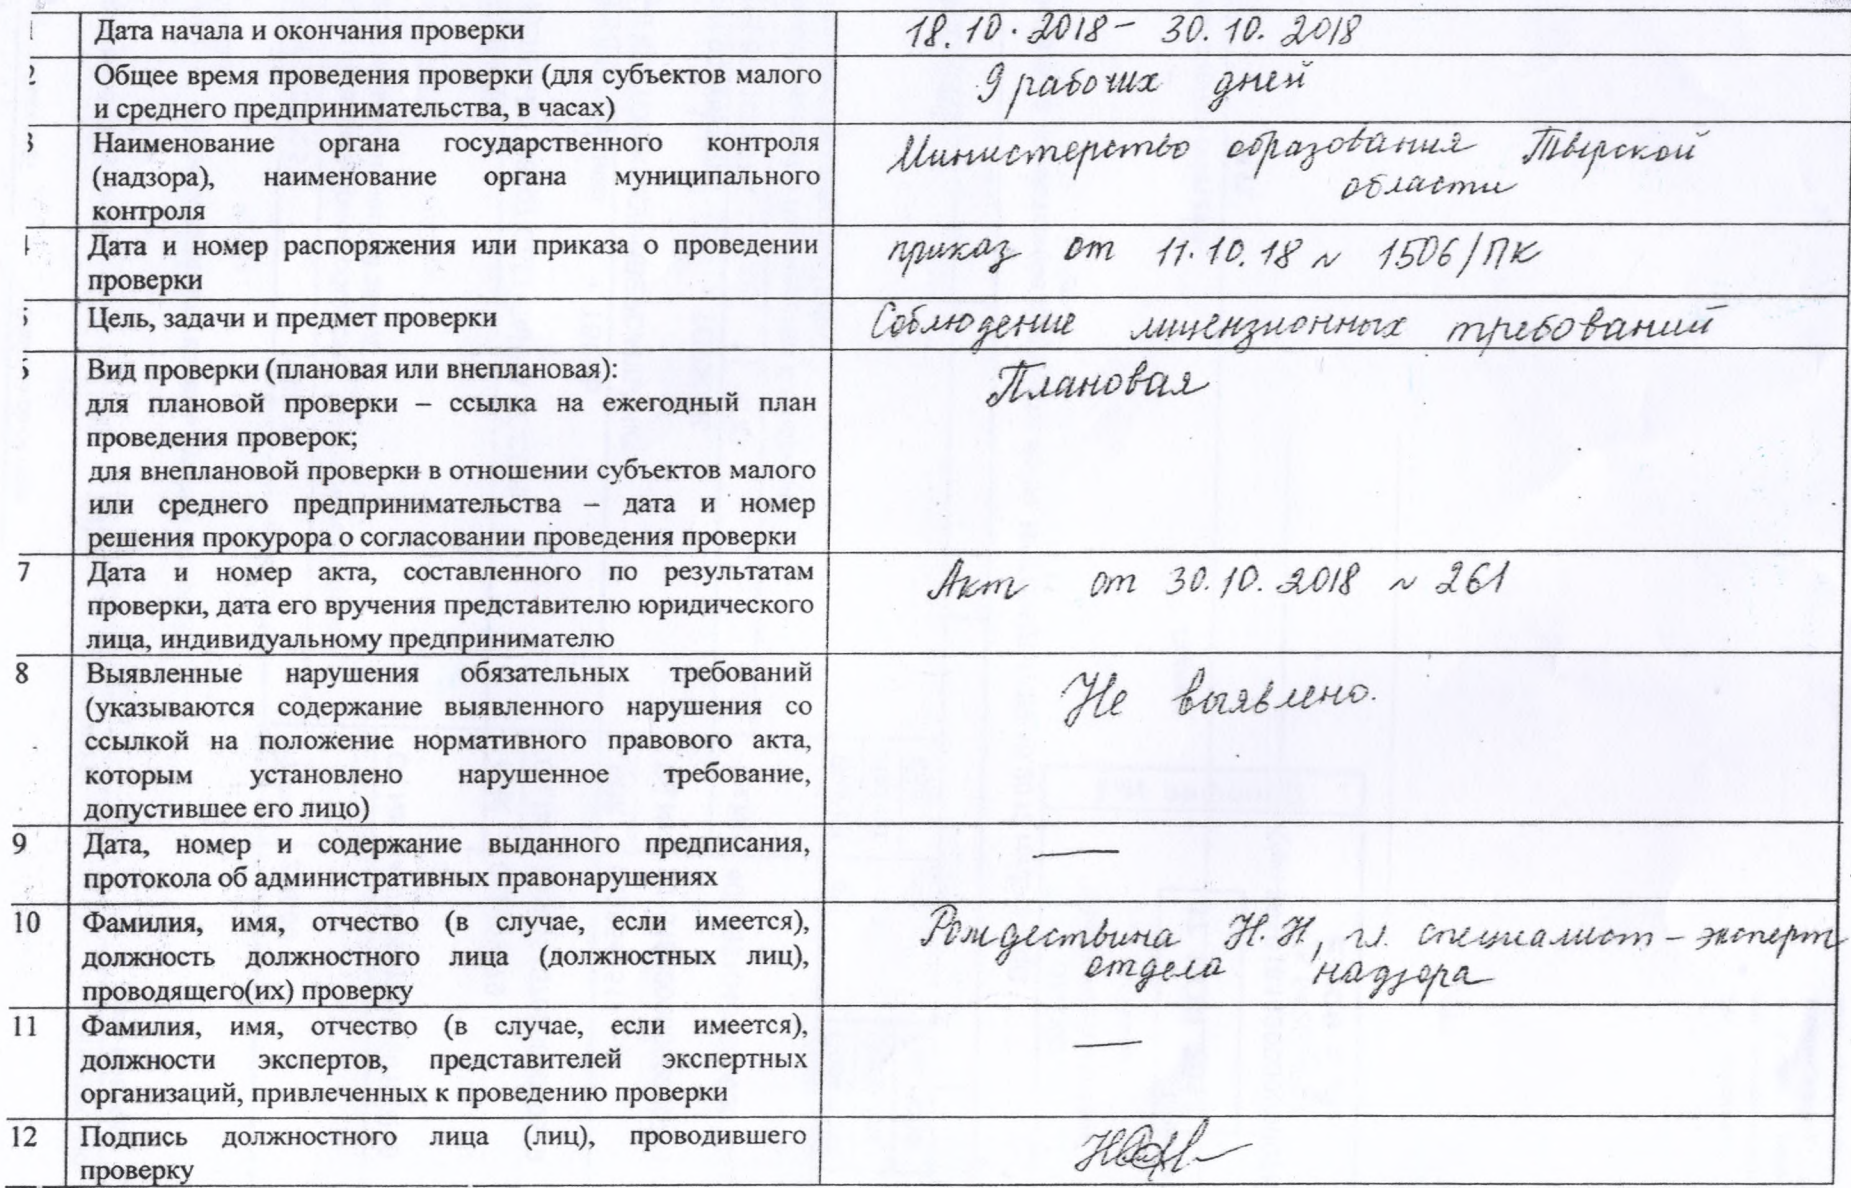 1 Дата начала и окончания проверки 18.10.2018 - 30.10.2018
2 Общее время проведения проверки (для субъектов малого
и среднего предпринимательства, в часах)
9 рабочих дней
3 Наименование органа государственного контроля
(надзора), наименование органа муниципального
контроля
Министерство образования Тверской
области
Дата и номер распоряжения или приказа о проведении
проверки
приказ от 11.10.18 № 1506/ПК
5 Цель, задачи и предмет проверки Соблюдение лицензионных требований
Вид проверки (плановая или внеплановая):
для плановой проверки – ссылка на ежегодный план
проведения проверок;
для внеплановой проверки в отношении субъектов малого
или среднего предпринимательства – дата и номер
решения прокурора о согласовании проведения проверки
Плановая
7 Дата и номер акта, составленного по результатам
проверки, дата его вручения представителю юридического
лица, индивидуальному предпринимателю
Акт от 30.10.2018 № 261
8 Выявленные нарушения обязательных требований
(указываются содержание выявленного нарушения со
ссылкой на положение нормативного правового акта,
которым установлено нарушенное требование,
допустившее его лицо)
Не выявлено.
9 Дата, номер и содержание выданного предписания,
протокола об административных правонарушениях
—
10 Фамилия, имя, отчество (в случае, если имеется),
должность должностного лица (должностных лиц),
проводящего(их) проверку
Рождествина Н.Н, гл. специалист - эксперт
отдела надзора
11 Фамилия, имя, отчество (в случае, если имеется),
должности экспертов, представителей экспертных
организаций, привлеченных к проведению проверки
—
12 Подпись должностного лица (лиц), проводившего
проверку